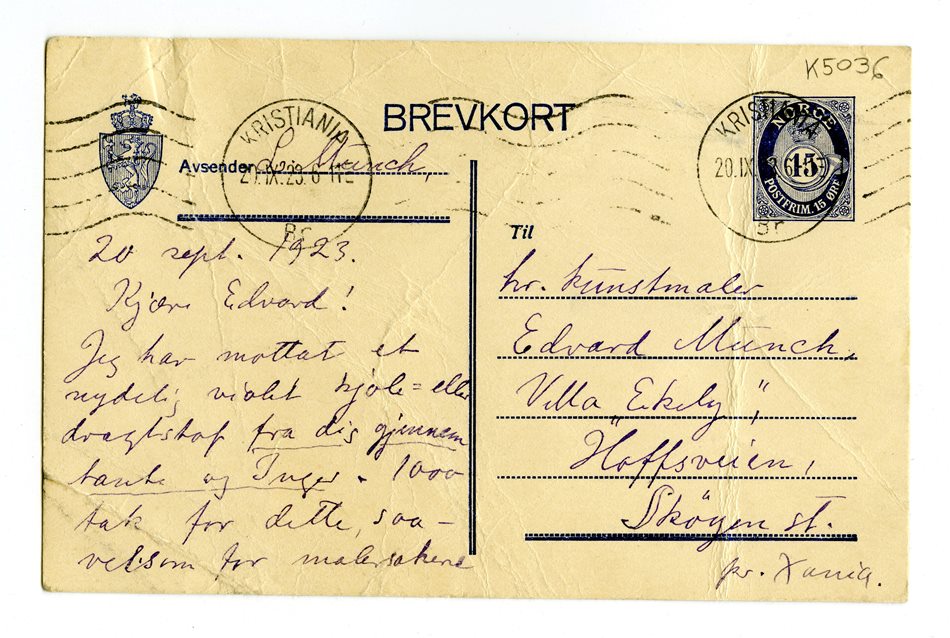 K5036
BREVKORT
KRISTIANIA
20.IX.23.6-11E
Br
KRISTIANIA
20.IX.23.6
Br
NORGE
15
POSTFRIM. 15 ØRE
Avsender L. Munch,
20 sept. 1923.
Kjære Edvard!
Jeg har mottat et
nydelig violet kjole= eller
dragtstof fra dig gjennem
tante og Inger. 1000
tak for dette, saa-
velsom for malersakene
Til
hr. kunstmaler
Edvard Munch,
Villa "Ekely",
Hoffsveien,
Skøyen st.
pr. Xania.